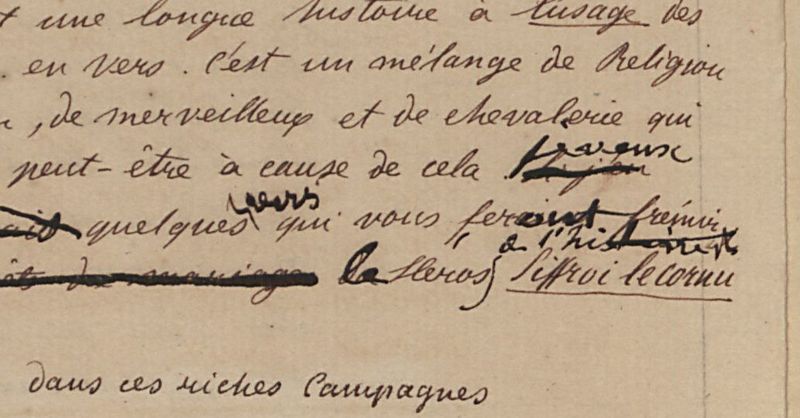 une longue histoire à l'usage des
en vers. C'est un mélange de Religion
, de merveilleux et de chevalerie qui
peut-être à cause de cela
quelques vers qui vous feront frémir
de l'histoire
le Heros, Siffroi le cornu
dans ces riches Campagnes